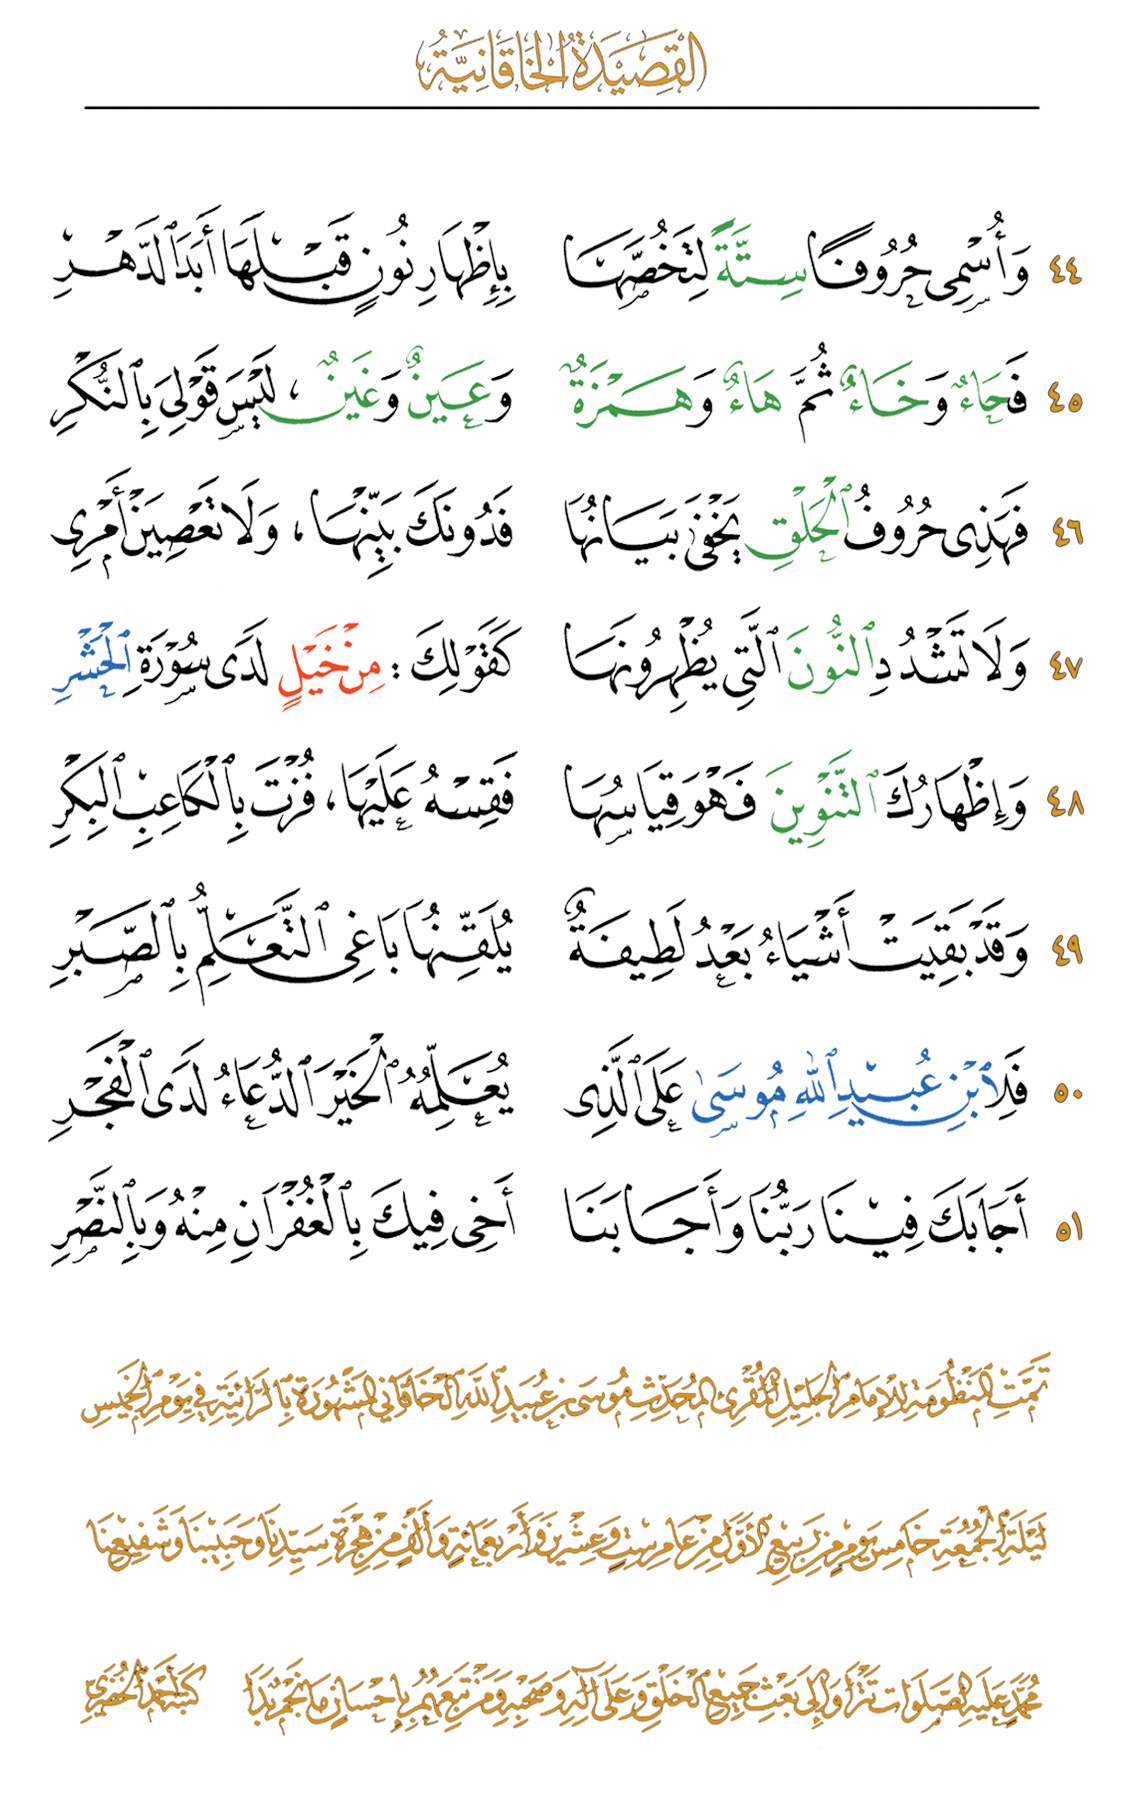 القَصِيدَةُ الخَاقَانِيَّةُ
٤٤ وَأُسْمِى حُرُوفًا سِتَّةً لِتَخُصَّهَا بِإِظْهَارِ نُونٍ قَبْلَهَا أَبَدَ ٱلدَّهْرِ
٤٥ فَحَاءٌ وَخَاءٌ ثُمَّ هَاءٌ وَهَمْزَةٌ وَعَيْنٌ وَغَيْنٌ ، لَيْسَ قَوْلِىَ بِٱلنُّكْرِ
٤٦ فَهَذِى حُرُوفُ ٱلْحَلْقِ يَخْفَىٰ بَيَانُهَا فَدُونَكَ بَيِّنْهَا ، وَلَا تَعْصِيَنْ أَمْرِى
٤٧ وَلَا تَشْدُدِ ٱلنُّونَ ٱلَّتِى يُظْهِرُونَهَا كَقَوْلِكَ : مِنْ خَيْلٍ لَدَى سُورَةِ ٱلْحَشْرِ
٤٨ وَإِظْهَارُكَ ٱلتَّنْوِينَ فَهْوَ قِيَاسُهَا فَقِسْهُ عَلَيْهَا ، فُزْتَ بِٱلْكَاعِبِ ٱلْبِكْرِ
٤٩ وَقَدْ بَقِيَتْ أَشْيَاءُ بَعْدُ لَطِيفَةٌ يُلَقَّنُهَا بَاغِى ٱلتَّعَلُّمِ بِٱلصَّبْرِ
٥٠ فَلِٱبْنِ عُبَيْدِ ٱللَّهِ مُوسَىٰ عَلَى ٱلَّذِى يُعَلِّمُهُ ٱلْخَيْرَ ٱلدُّعَاءُ لَدَى ٱلْفَجْرِ
٥١ أَجَابَكَ فِينَا رَبُّنَا وَأَجَابَنَا أَخِى فِيكَ بِٱلْغُفْرَانِ مِنْهُ وَبِٱلنَّصْرِ
تَمَّتِ المَنْظُومَةِ لِلْإِمَامِ الجَلِيلِ المُقْرِئِ المُحَدِّثِ مُوسَى بْنِ عُبَيْدِ اللَّهِ الخَاقَانِي المَشْهُورَةِ بِالرَّائِيَّةِ فِي يَوْمِ الخَمِيسِ
لَيْلَةَ الجُمُعَةِ خَامِسِ يَوْمٍ مِنْ رَبِيعِ الأَوَّلِ مِنْ عَامِ سِتٍّ وَعِشْرِينَ وَأَرْبَعِمَائَةٍ وَأَلْفٍ مِنْ هِجْرَةِ سَيِّدِنَا وَحَبِيبِنَا وَشَفِيعِنَا
مُحَمَّدٍ عَلَيْهِ الصَّلَوَاتُ تَتْرَا وَإِلَى بَعْثِ جَمِيعِ الْخَلْقِ وَعَلَى آلِهِ وَصَحْبِهِ وَمَنْ تَبِعَهُمُ بِإِحْسَانٍ مَا نَجْمٌ بَدَا كَتَبَهُ أَحْمَدُ الخُضَرِيّ